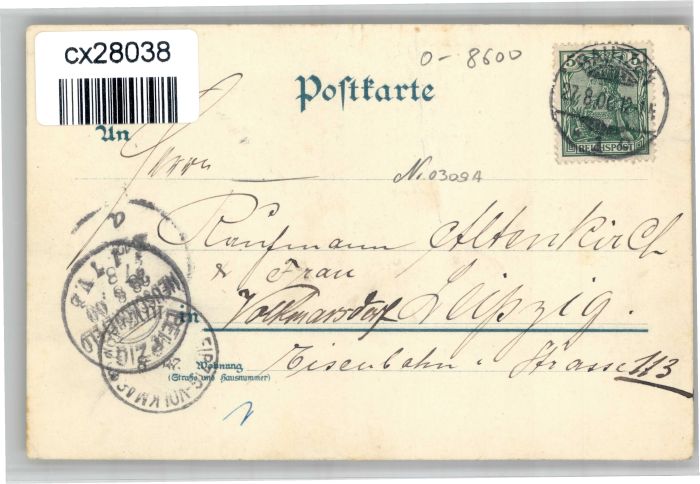 cx28038
0-8600
Postkarte
BAUTZEN
27.8.00
REICHSPOST
An
Herrn
N.0309A
Kaufmann Altenkirch
& Frau
in Volkmarsdorf Leipzig.
Wohnung
(Straße und Hausnummer)
Eisenbahn-Strasse 113